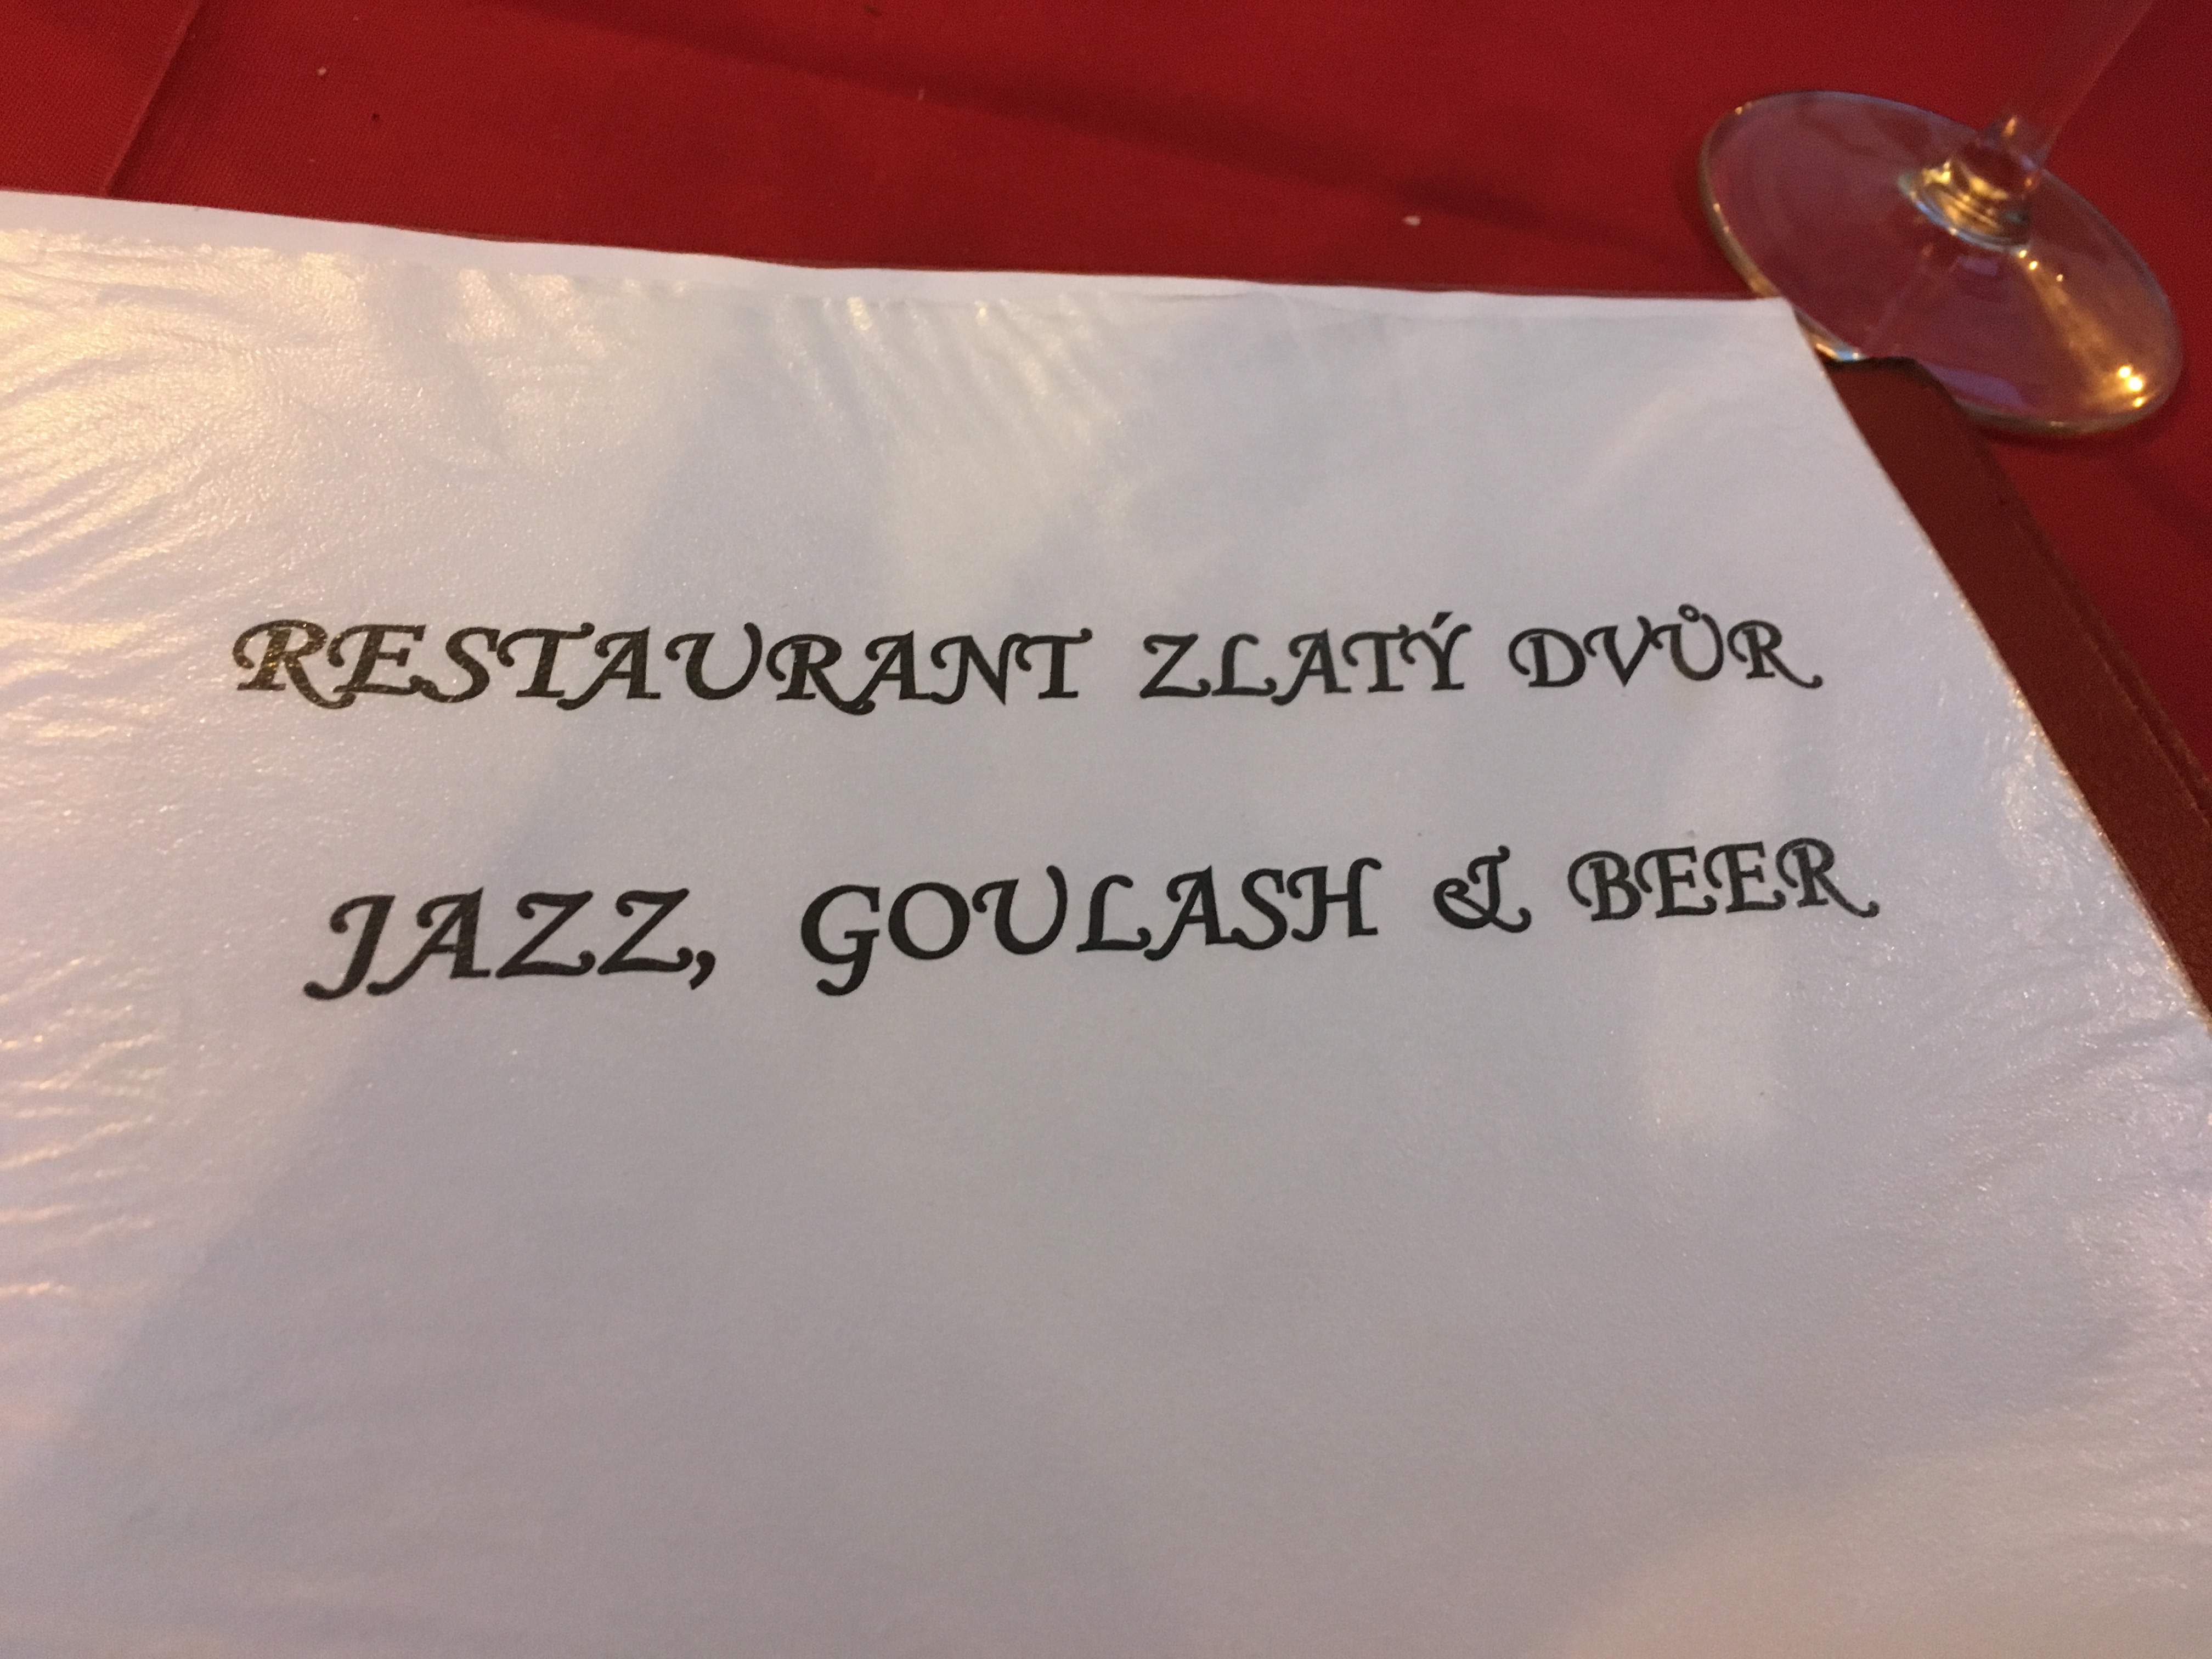 RESTAURANT ZLATÝ DVŮR
JAZZ, GOULASH & BEER